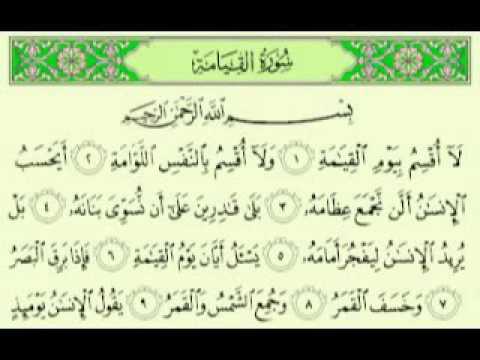 سُورَةُ الْقِيَامَةِ
بِسْمِ اللَّهِ الرَّحْمَٰنِ الرَّحِيمِ
لَآ أُقْسِمُ بِيَوْمِ ٱلْقِيَٰمَةِ ١ وَلَآ أُقْسِمُ بِٱلنَّفْسِ ٱللَّوَّامَةِ ٢ أَيَحْسَبُ
ٱلْإِنسَٰنُ أَلَّن نَّجْمَعَ عِظَامَهُۥ ٣ بَلَىٰ قَٰدِرِينَ عَلَىٰٓ أَن نُّسَوِّىَ بَنَانَهُۥ ٤ بَلْ
يُرِيدُ ٱلْإِنسَٰنُ لِيَفْجُرَ أَمَامَهُۥ ٥ يَسْـَٔلُ أَيَّانَ يَوْمُ ٱلْقِيَٰمَةِ ٦ فَإِذَا بَرِقَ ٱلْبَصَرُ
٧ وَخَسَفَ ٱلْقَمَرُ ٨ وَجُمِعَ ٱلشَّمْسُ وَٱلْقَمَرُ ٩ يَقُولُ ٱلْإِنسَٰنُ يَوْمَئِذٍ